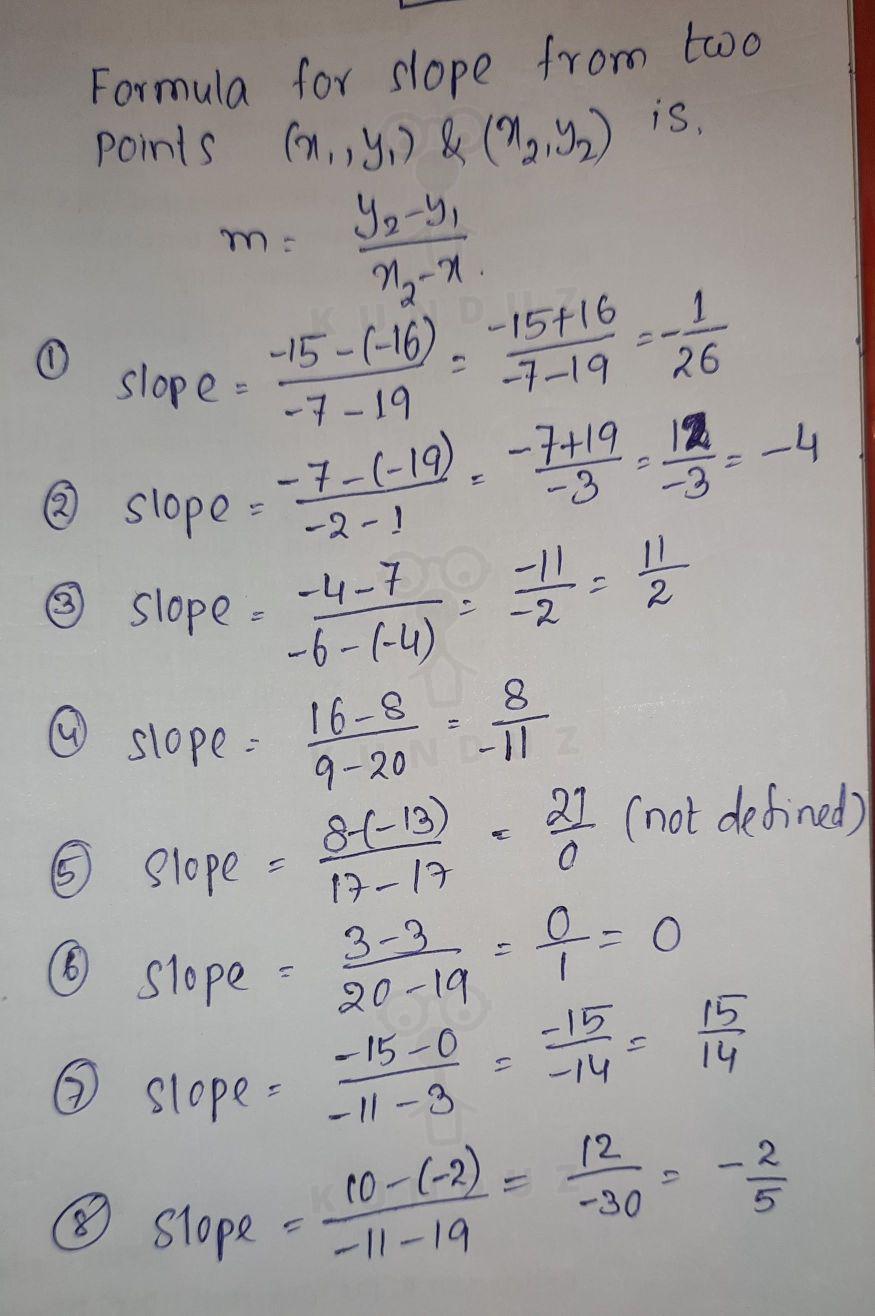 Formula for slope from two
points (x₁,y₁) & (x₂,y₂) is,
m = (y₂-y₁)/(x₂-x.
① slope = (-15-(-16))/(-7-19) = (-15+16)/(-7-19) = -1/26
② slope = (-7-(-19))/(-2-1) = (-7+19)/(-3) = 12/-3 = -4
③ slope = (-4-7)/(-6-(-4)) = -11/-2 = 11/2
④ slope = (16-8)/(9-20) = 8/-11
⑤ slope = (8-(-13))/(17-17) = 21/0 (not defined)
⑥ slope = (3-3)/(20-19) = 0/1 = 0
⑦ slope = (-15-0)/(-11-3) = -15/-14 = 15/14
⑧ slope = (10-(-2))/(-11-19) = 12/-30 = -2/5
KUNDUZ
KUNDUZ
KUNDUZ